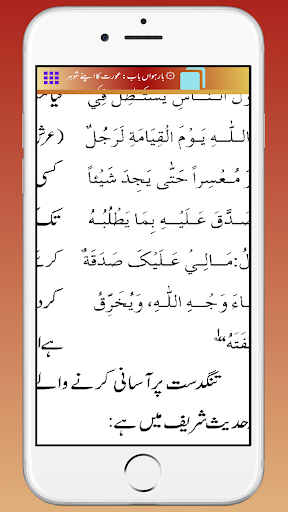 بارہواں باب : عورت کا اپنے شوہر
وَّلَ النَّاسِ يَسْتَظِلُّ فِي
اللّٰهِ يَوْمَ الْقِيَامَةِ لَرَجُلٌ (عرش
مُعْسِرًا حَتّٰى يَجِدَ شَيْئًا کسی
صَدَّقَ عَلَيْهِ بِمَا يَطْلُبُهُ تک
لُ:مَالِيْ عَلَيْكَ صَدَقَةٌ کرے
اءَ وَجْهِ اللّٰهِ، وَيُخَرِّقُ کرد
ہے
تنگدست پر آسانی کرنے والے
حدیث شریف میں ہے: